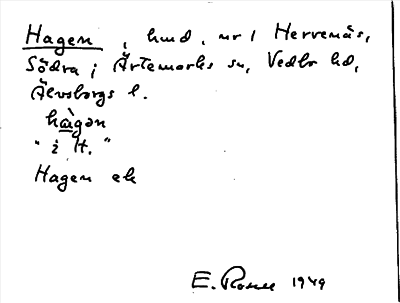 Hagen, hmd, nr 1 Hervenäs,
Södra i Ärtemarks sn, Vedbo hd,
Älvsborgs l.
hàgən
"i H."
Hagen ek
E. Rosell 1949